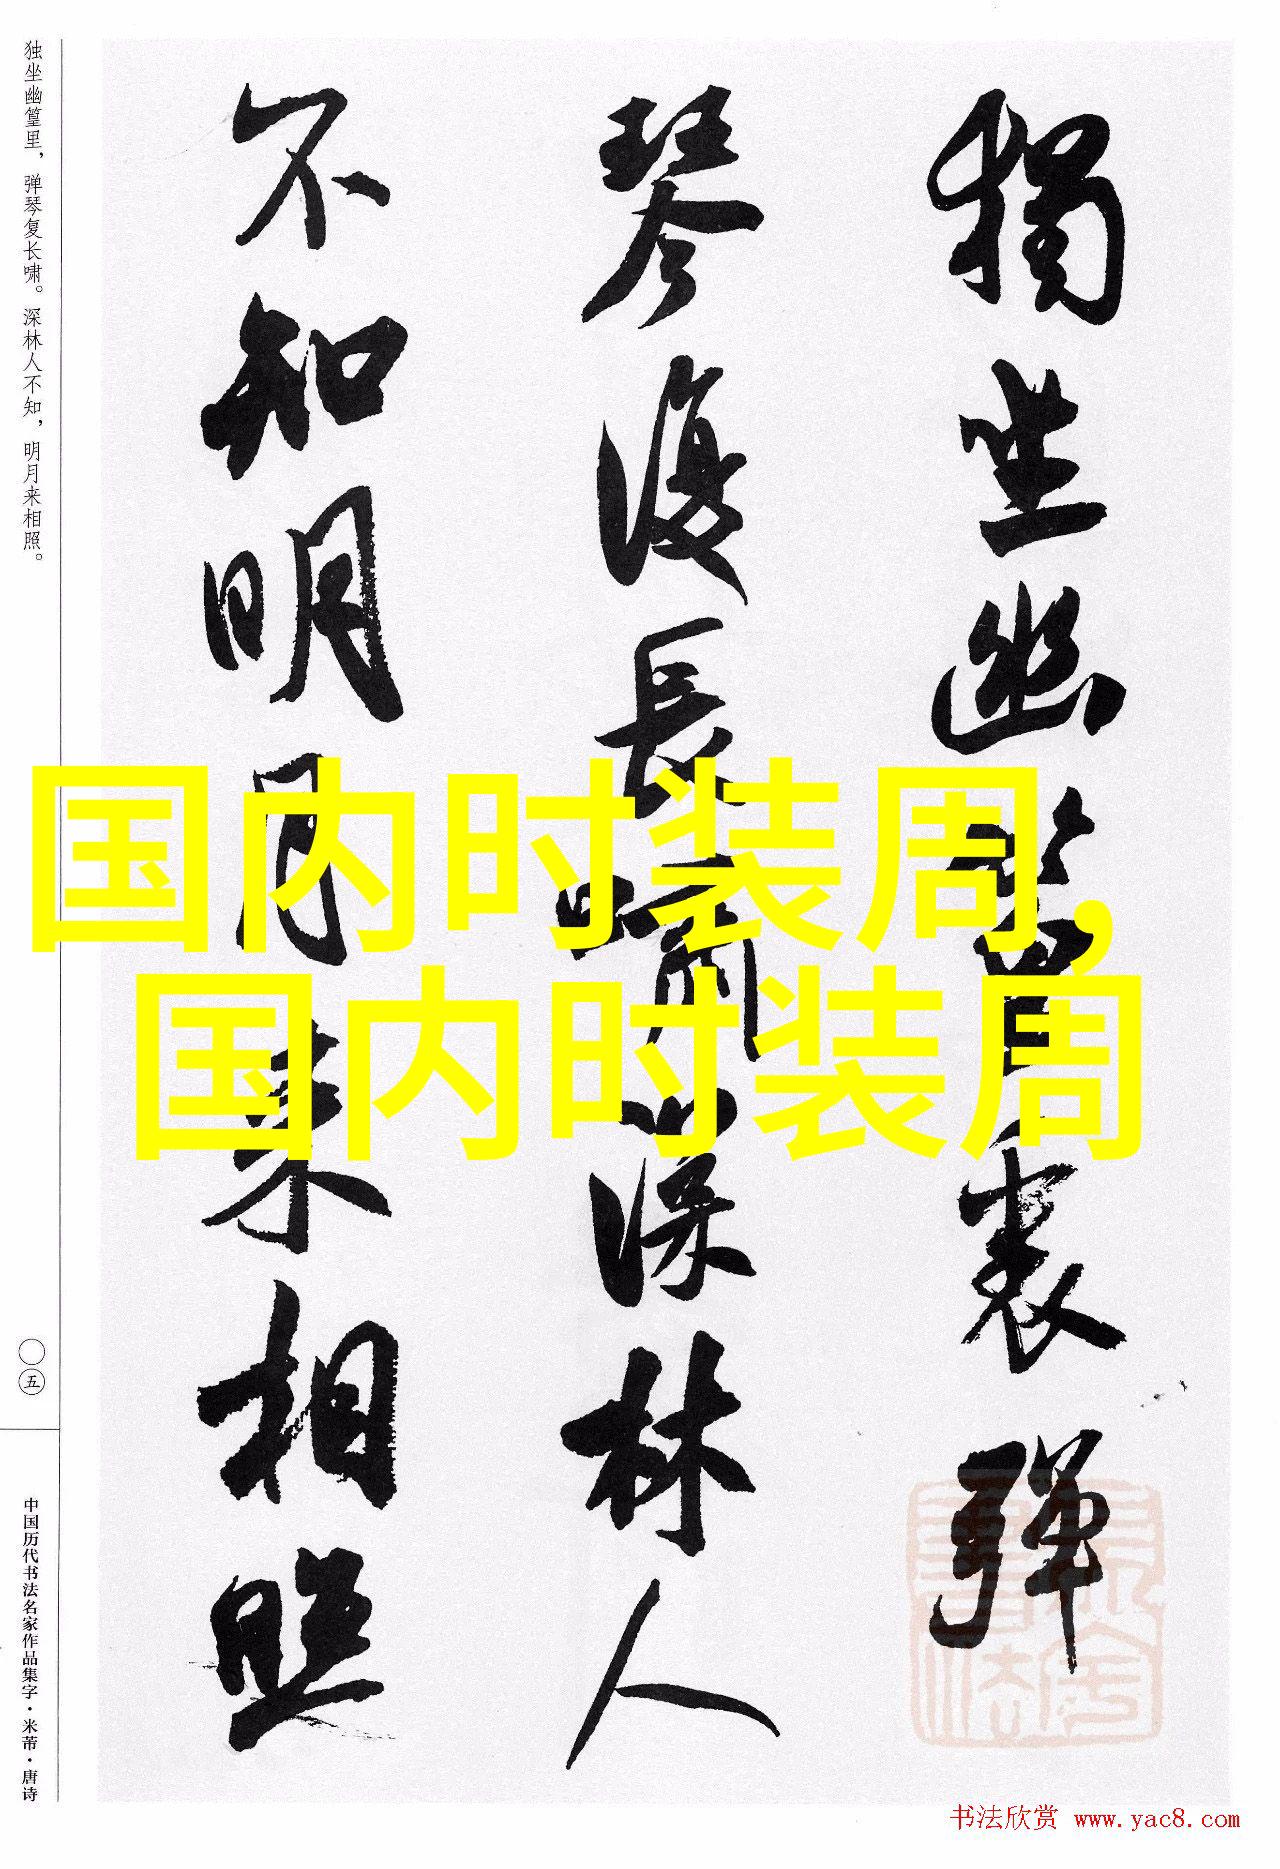 獨坐幽篁裏彈
琴復長嘯深林人
不知明月来相照
独坐幽篁里，弹琴复长啸。深林人不知，明月来相照。
〇五
中国历代书法名家作品集字·米芾·唐诗
国内时装周，
国内时装周
书法欣赏 www.yac8.com